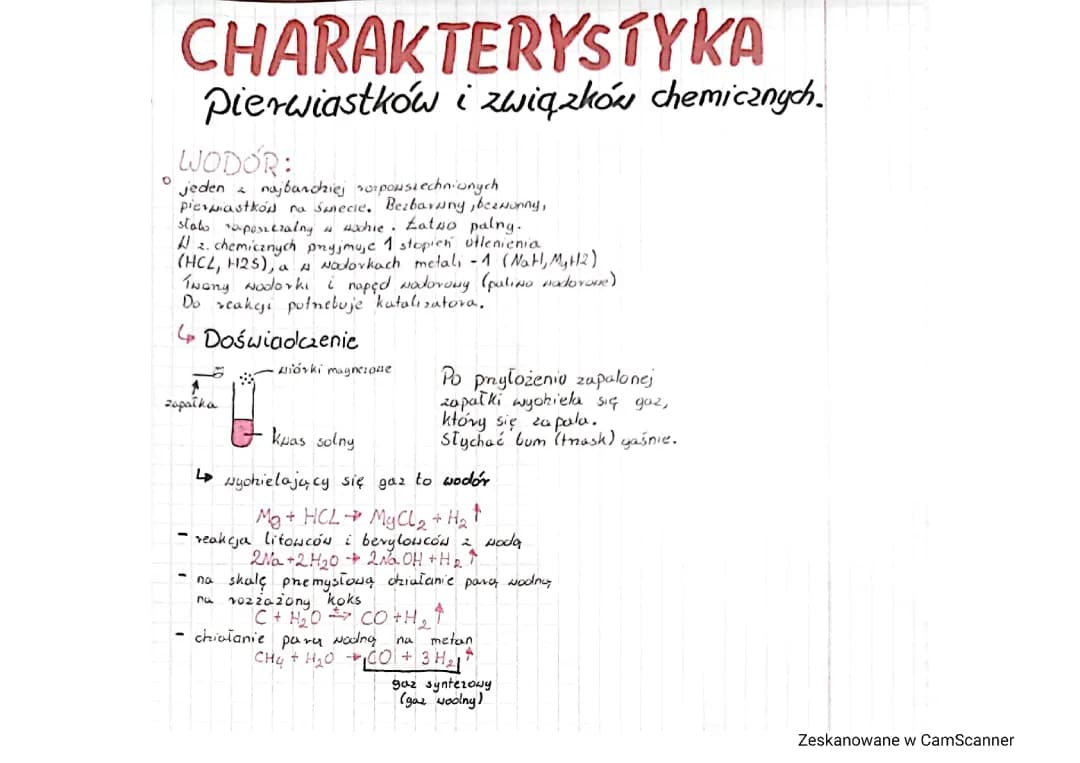 CHARAKTERYSTYKA
pierwiastków i związków chemicznych.
WODÓR:
jeden z najbardziej rozpowszechnionych
pierwiastków na świecie. Bezbarwny, bezwonny,
słabo rozpuszczalny w wodzie. Łatwo palny.
W z. chemicznych przyjmuje 1 stopień utlenienia
(HCL, H2S), a w wodorkach metali -1 (NaH, MgH2)
Tworzy wodorki i napęd wodorowy (paliwo wodorowe)
Do reakcji potrzebuje katalizatora.
↳ Doświadczenie
wiórki magnezowe
zapałka
kwas solny
Po przyłożeniu zapalonej
zapałki wydziela się gaz,
który się zapala.
Słychać bum (trzask) gaśnie.
↳ wydzielający się gaz to wodór
Mg + HCL → MgCl₂ + H₂ ↑
- reakcja litowców i berylowców z wodą
2Na + 2H₂O → 2NaOH + H₂ ↑
- na skalę przemysłową działanie parą wodną
na rozżażony koks
C + H₂O → CO + H₂ ↑
- działanie parą wodną na metan
CH₄ + H₂O → CO + 3H₂ ↑
gaz syntezowy
(gaz wodny)
Zeskanowane w CamScanner